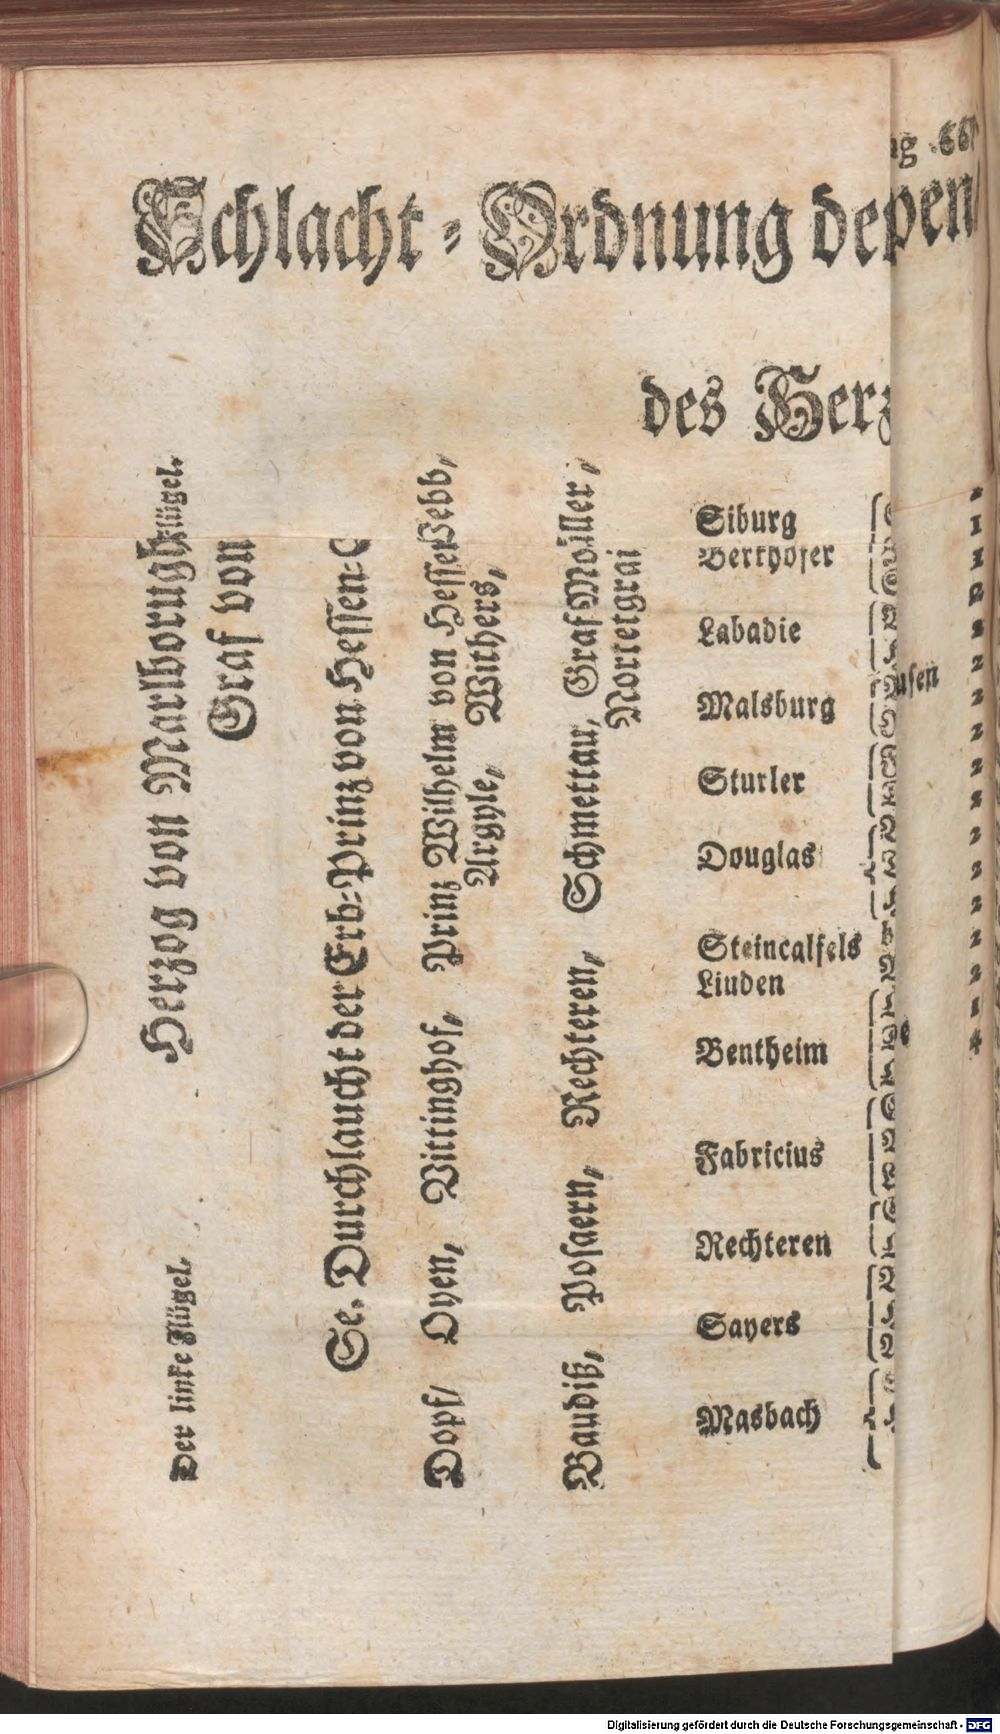 Schlacht-Ordnung depen
des Herz
Herzog von Marlborugh
Flügel.
Der linke Flügel.
Graf von
Se. Durchlaucht der Erb-Prinz von Hessen-C
Dopf/ Oyen, Vittinghof, Prinz Wilhelm von Hesse Webb,
Argyle, Withers,
Baudiß, Posaern, Rechteren, Schmettau, Graf Moller,
Siburg
Berkhofer
Labadie
Malsburg
Sturler
Douglas
Steincalfels
Linden
Bentheim
Fabricius
Rechteren
Sayers
Masbach
usen
2
1
1
2
2
2
2
2
2
2
2
2
2
2
1
4
Digitalisierung gefördert durch die Deutsche Forschungsgemeinschaft - DFG